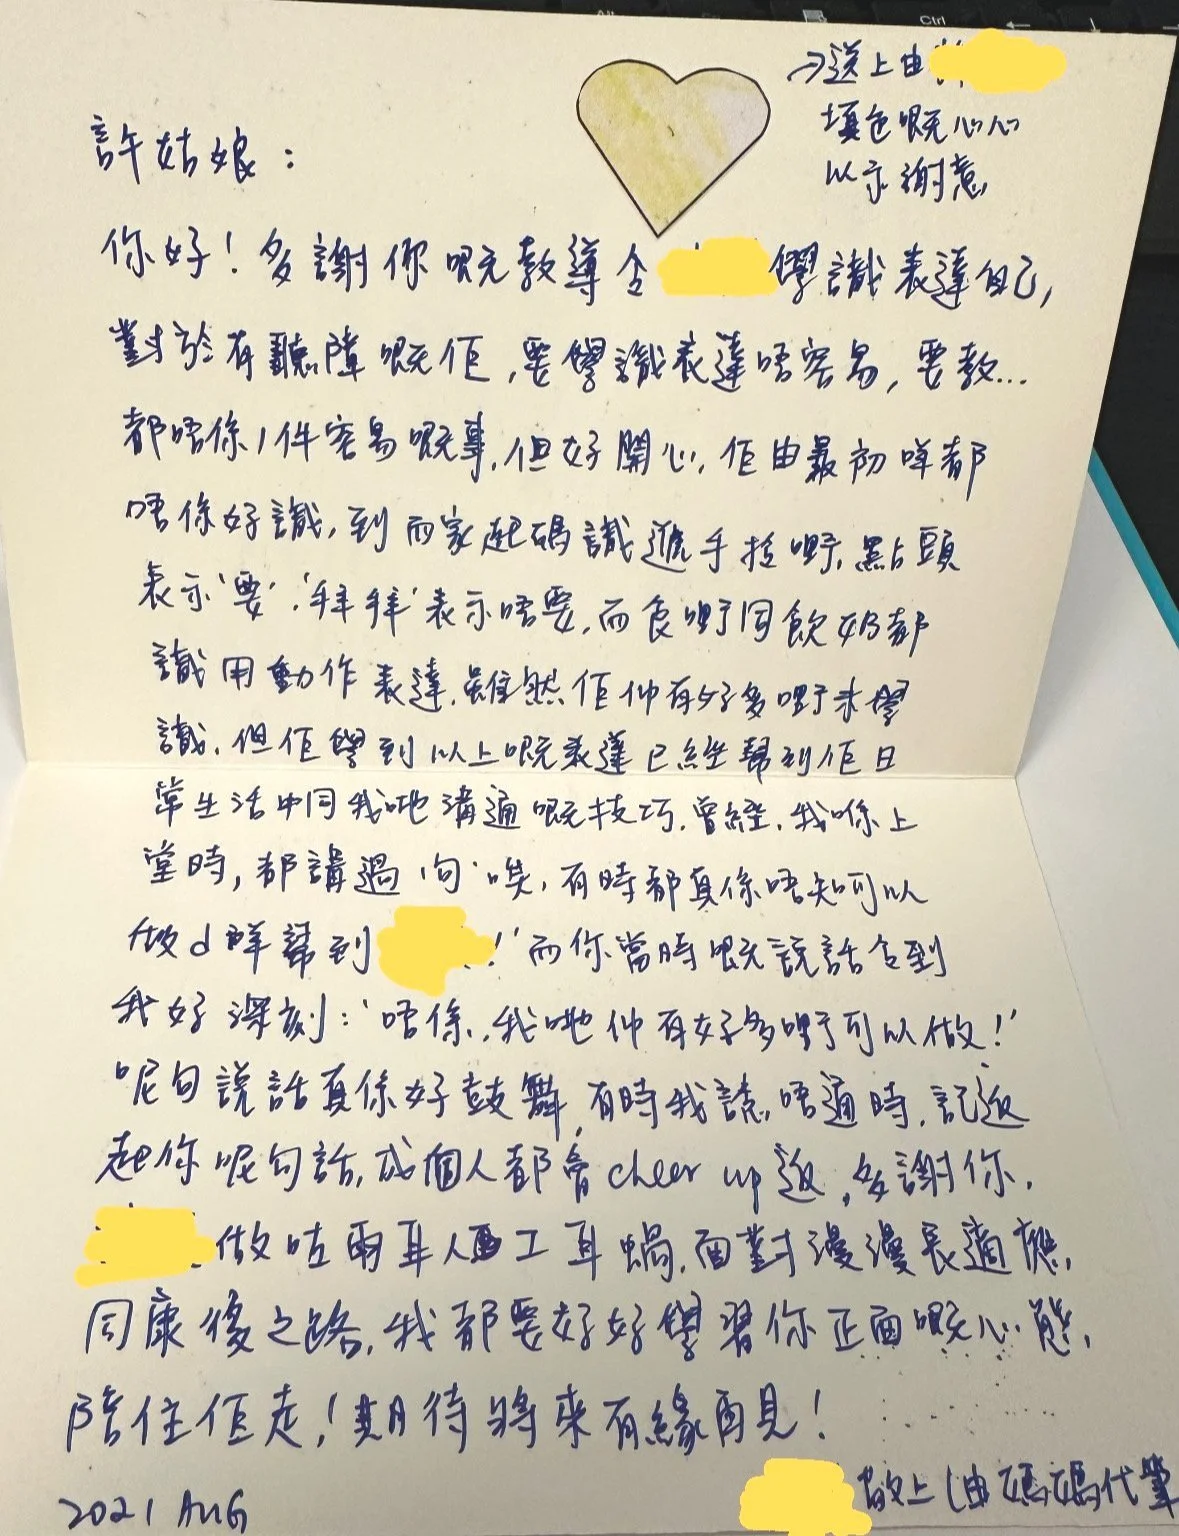 →送上由
填色嘅心心
以示謝意
許姑娘：
你好！多謝你嘅教導令 學識表達自己,
對於有聽障嘅佢,要學識表達唔容易,要教...
都唔係1件容易嘅事,但好開心,佢由最初咩都
唔係好識,到而家起碼識遞手拉嘢,點頭
表示'要','拜拜'表示唔要,而食嘢同飲奶都
識用動作表達,雖然佢仲有好多嘢未學
識,但佢學到以上嘅表達已經幫到佢日
常生活中同我哋溝通嘅技巧,曾經,我喺上
堂時,都講過1句'唉,有時都真係唔知可以
做d咩幫到 !'而你當時嘅說話令到
我好深刻:'唔係,我哋仲有好多嘢可以做!'
呢句說話真係好鼓舞,有時我諗唔通時,記返
起你呢句話,成個人都會cheer up返,多謝你,
做咗兩耳人工耳蝸,面對漫漫長適應,
同康復之路,我都要好好學習你正面嘅心態,
陪住佢走!期待將來有緣再見!
敬上(由媽媽代筆
2021 AUG
Ctrl